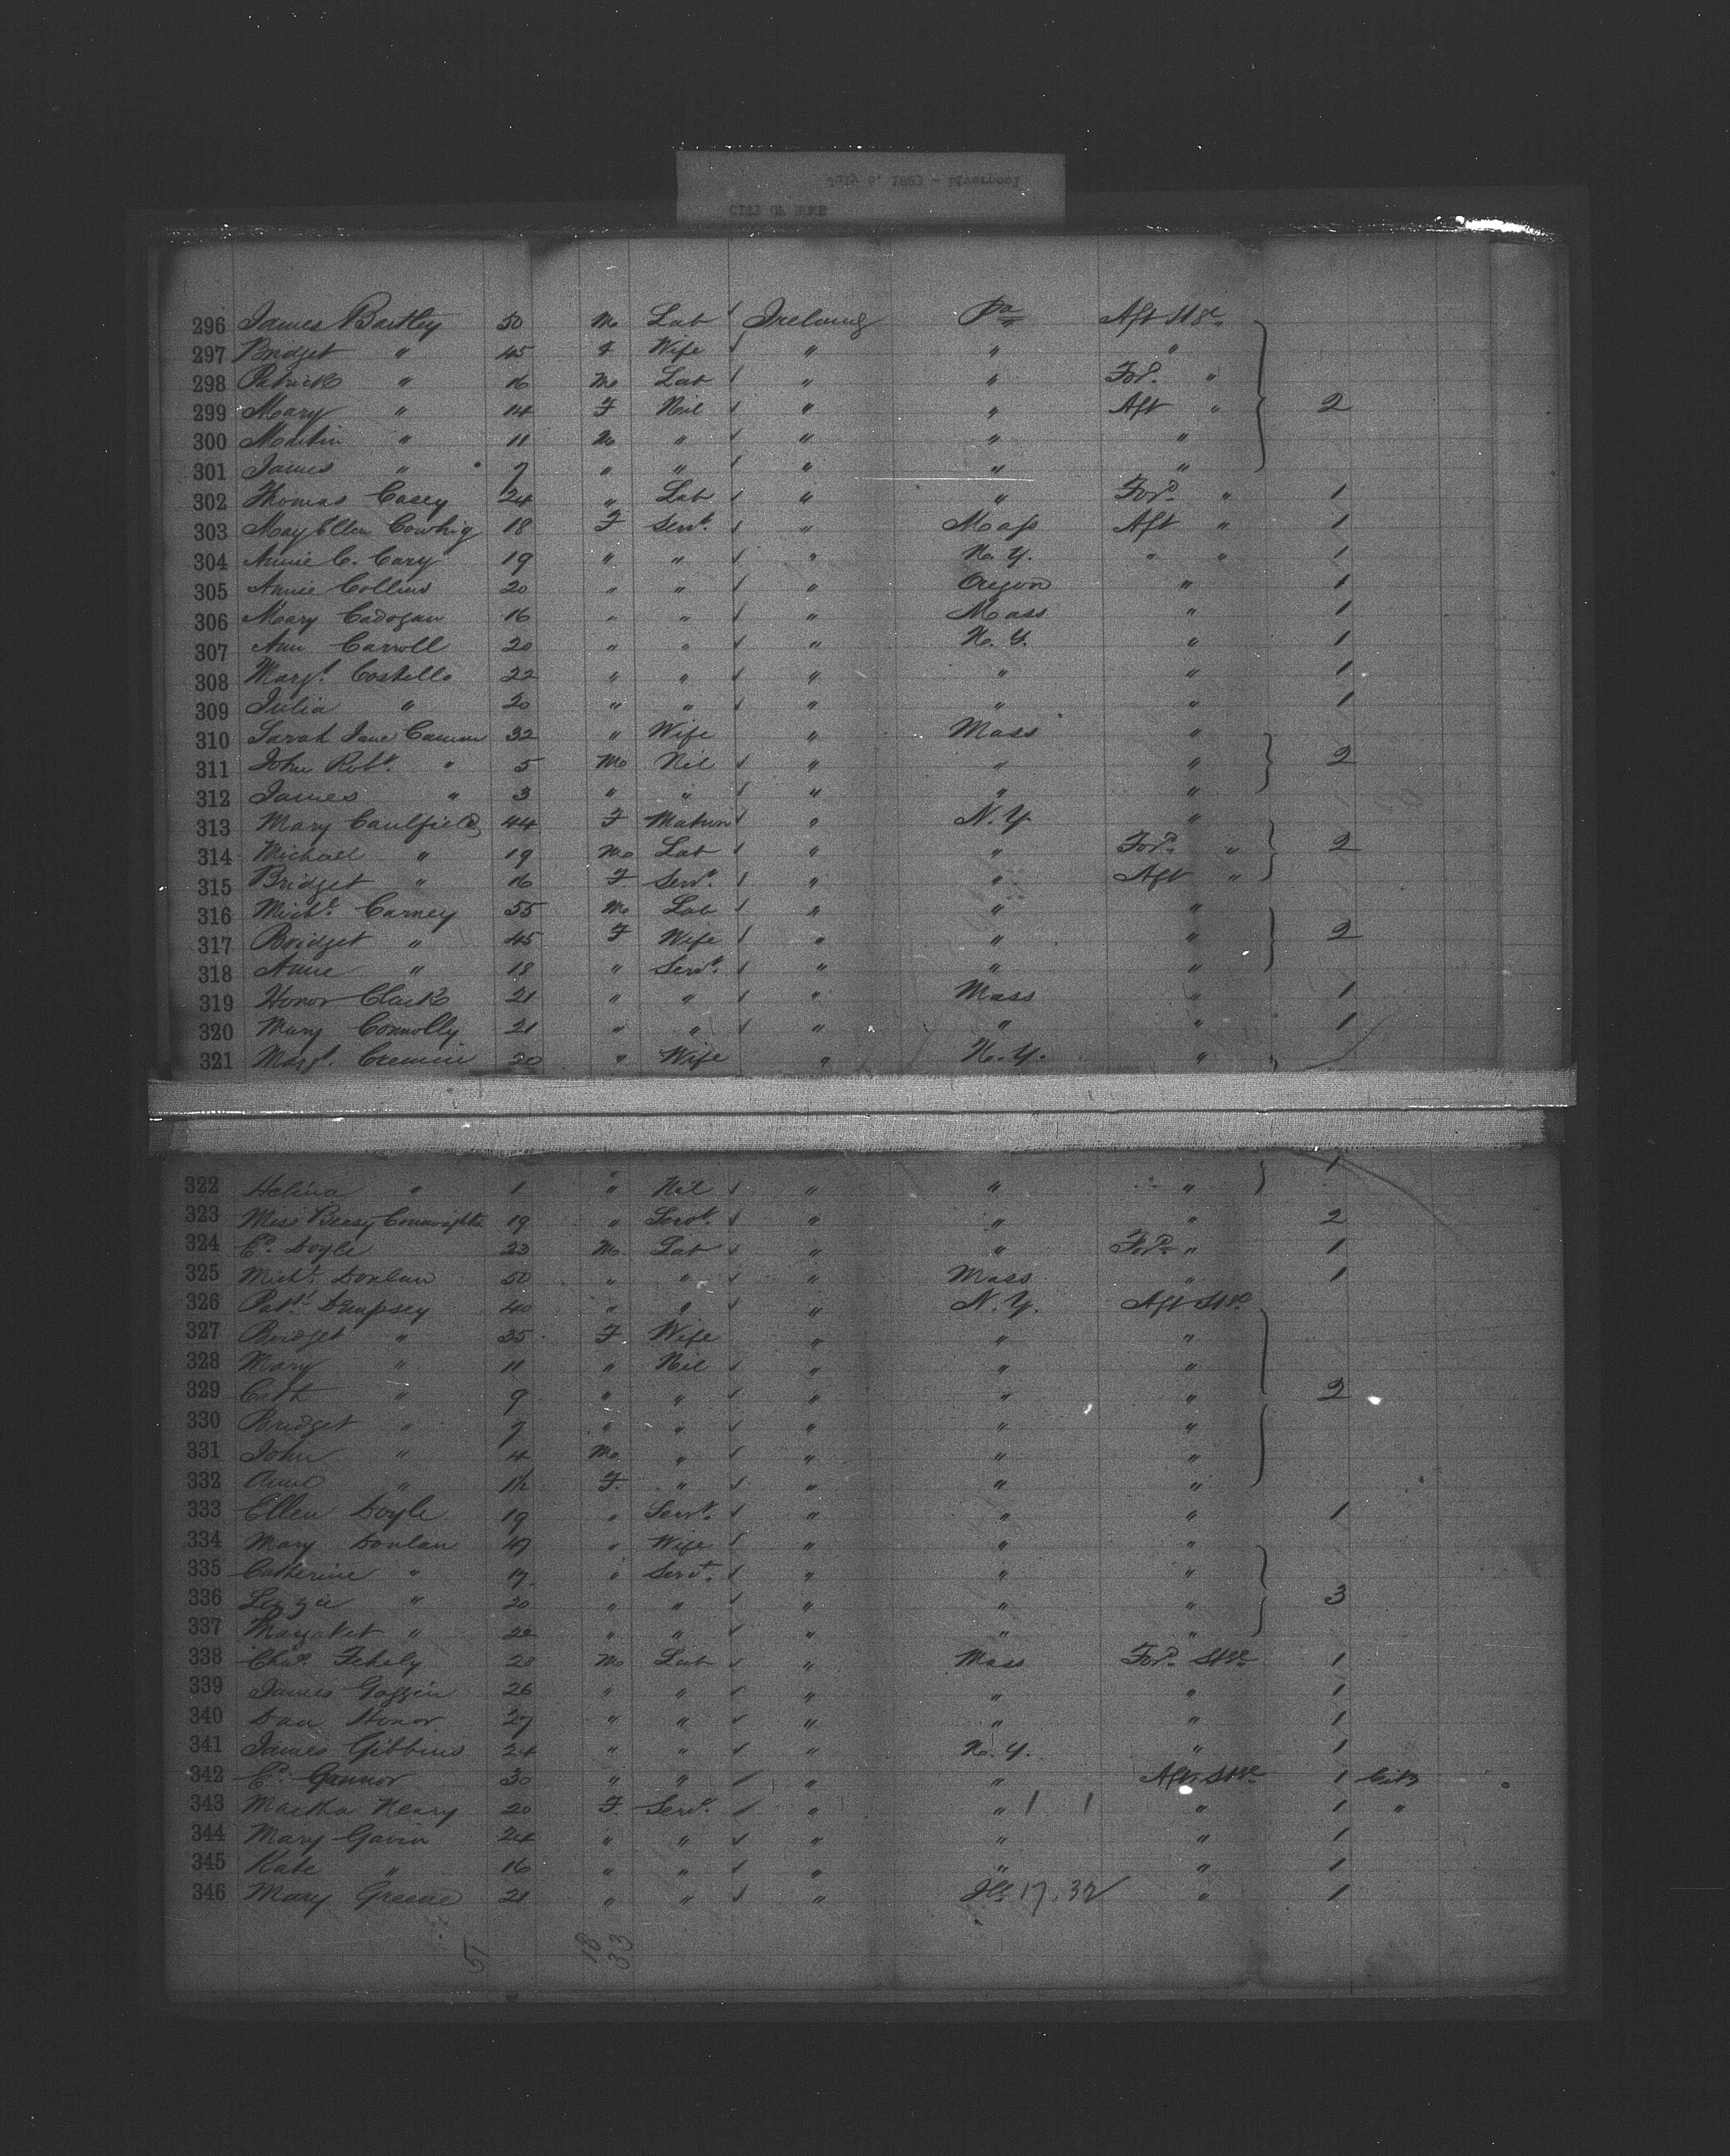 July 6, 1883 - Liverpool
CITY OF ROME
296 James Bartley 50 M Lab ✓ Ireland Pa Aft Stge
297 Bridget " 45 F Wife ✓ " " "
298 Patrick " 16 M Lab ✓ " " Ford "
299 Mary " 14 F Nil ✓ " " Aft " 2
300 Martin " 11 M " ✓ " " "
301 James " 7 " " ✓ " " "
302 Thomas Casey 24 " Lab ✓ " " Ford " 1
303 May Ellen Cowhig 18 F Servt ✓ " Mass Aft " 1
304 Annie C. Cary 19 " " ✓ " N.Y. " " 1
305 Annie Collins 20 " " ✓ " Oregon " 1
306 Mary Cadogan 16 " " ✓ " Mass " 1
307 Ann Carroll 20 " " ✓ " N.Y. " 1
308 Margt Costello 22 " " ✓ " " " 1
309 Julia " 20 " " ✓ " " " 1
310 Sarah Jane 32 " Wife " Mass "
311 John Robt. " 5 M Nil ✓ " " " 2
312 James " 3 " " ✓ " " "
313 Mary Caulfield 44 F Matron ✓ " N.Y. "
314 Michael " 19 M Lab ✓ " " Ford " 2
315 Bridget " 16 F Servt. ✓ " " Aft "
316 Michl. Carney 55 M Lab ✓ " " "
317 Bridget " 45 F Wife ✓ " " " 2
318 Annie " 18 " Servt. ✓ " " "
319 Honor Clark 21 " " ✓ " Mass " 1
320 Mary Connolly 21 " " ✓ " " " 1
321 Margt. Cremin 20 " Wife " N.Y. "
1
322 Helina " 1 " Nil ✓ " " "
323 Miss Bessy 19 " Servt. ✓ " " " 2
324 Ed. Doyle 23 M Lab ✓ " " Ford " 1
325 Michl. Donlan 50 " " ✓ " Mass " 1
326 Patk. Dempsey 40 " " ✓ " N.Y. Aft Stge
327 Bridget " 35 F Wife " " "
328 Mary " 11 " Nil ✓ " " "
329 Cath " 9 " " ✓ " " " 2
330 Bridget " 7 " " ✓ " " "
331 John " 4 M " ✓ " " "
332 Anne " 1½ F " ✓ " " "
333 Ellen Doyle 19 " Servt. ✓ " " " 1
334 Mary Donlan 49 " Wife ✓ " " "
335 Catherine " 17 " Servt. ✓ " " "
336 Lizzie " 20 " " ✓ " " " 3
337 Margaret " 22 " " ✓ " " "
338 Chas. Fehely 28 M Lab ✓ " Mass Ford Stge 1
339 James Goggin 26 " " ✓ " " " 1
340 Dan Honor 27 " " ✓ " " " 1
341 James Gibbins 24 " " ✓ " N.Y. " 1
342 Ed. Gannor 30 " " ✓ " " Aft Stge 1 Citz
343 Martha Neary 20 F Servt. ✓ " " 1 1 " 1 "
344 Mary Gavin 24 " " ✓ " " " 1
345 Kate " 16 " " ✓ " " " 1
346 Mary Greene 21 " " ✓ " Ills 17.32 ✓ " 1
51 18 33